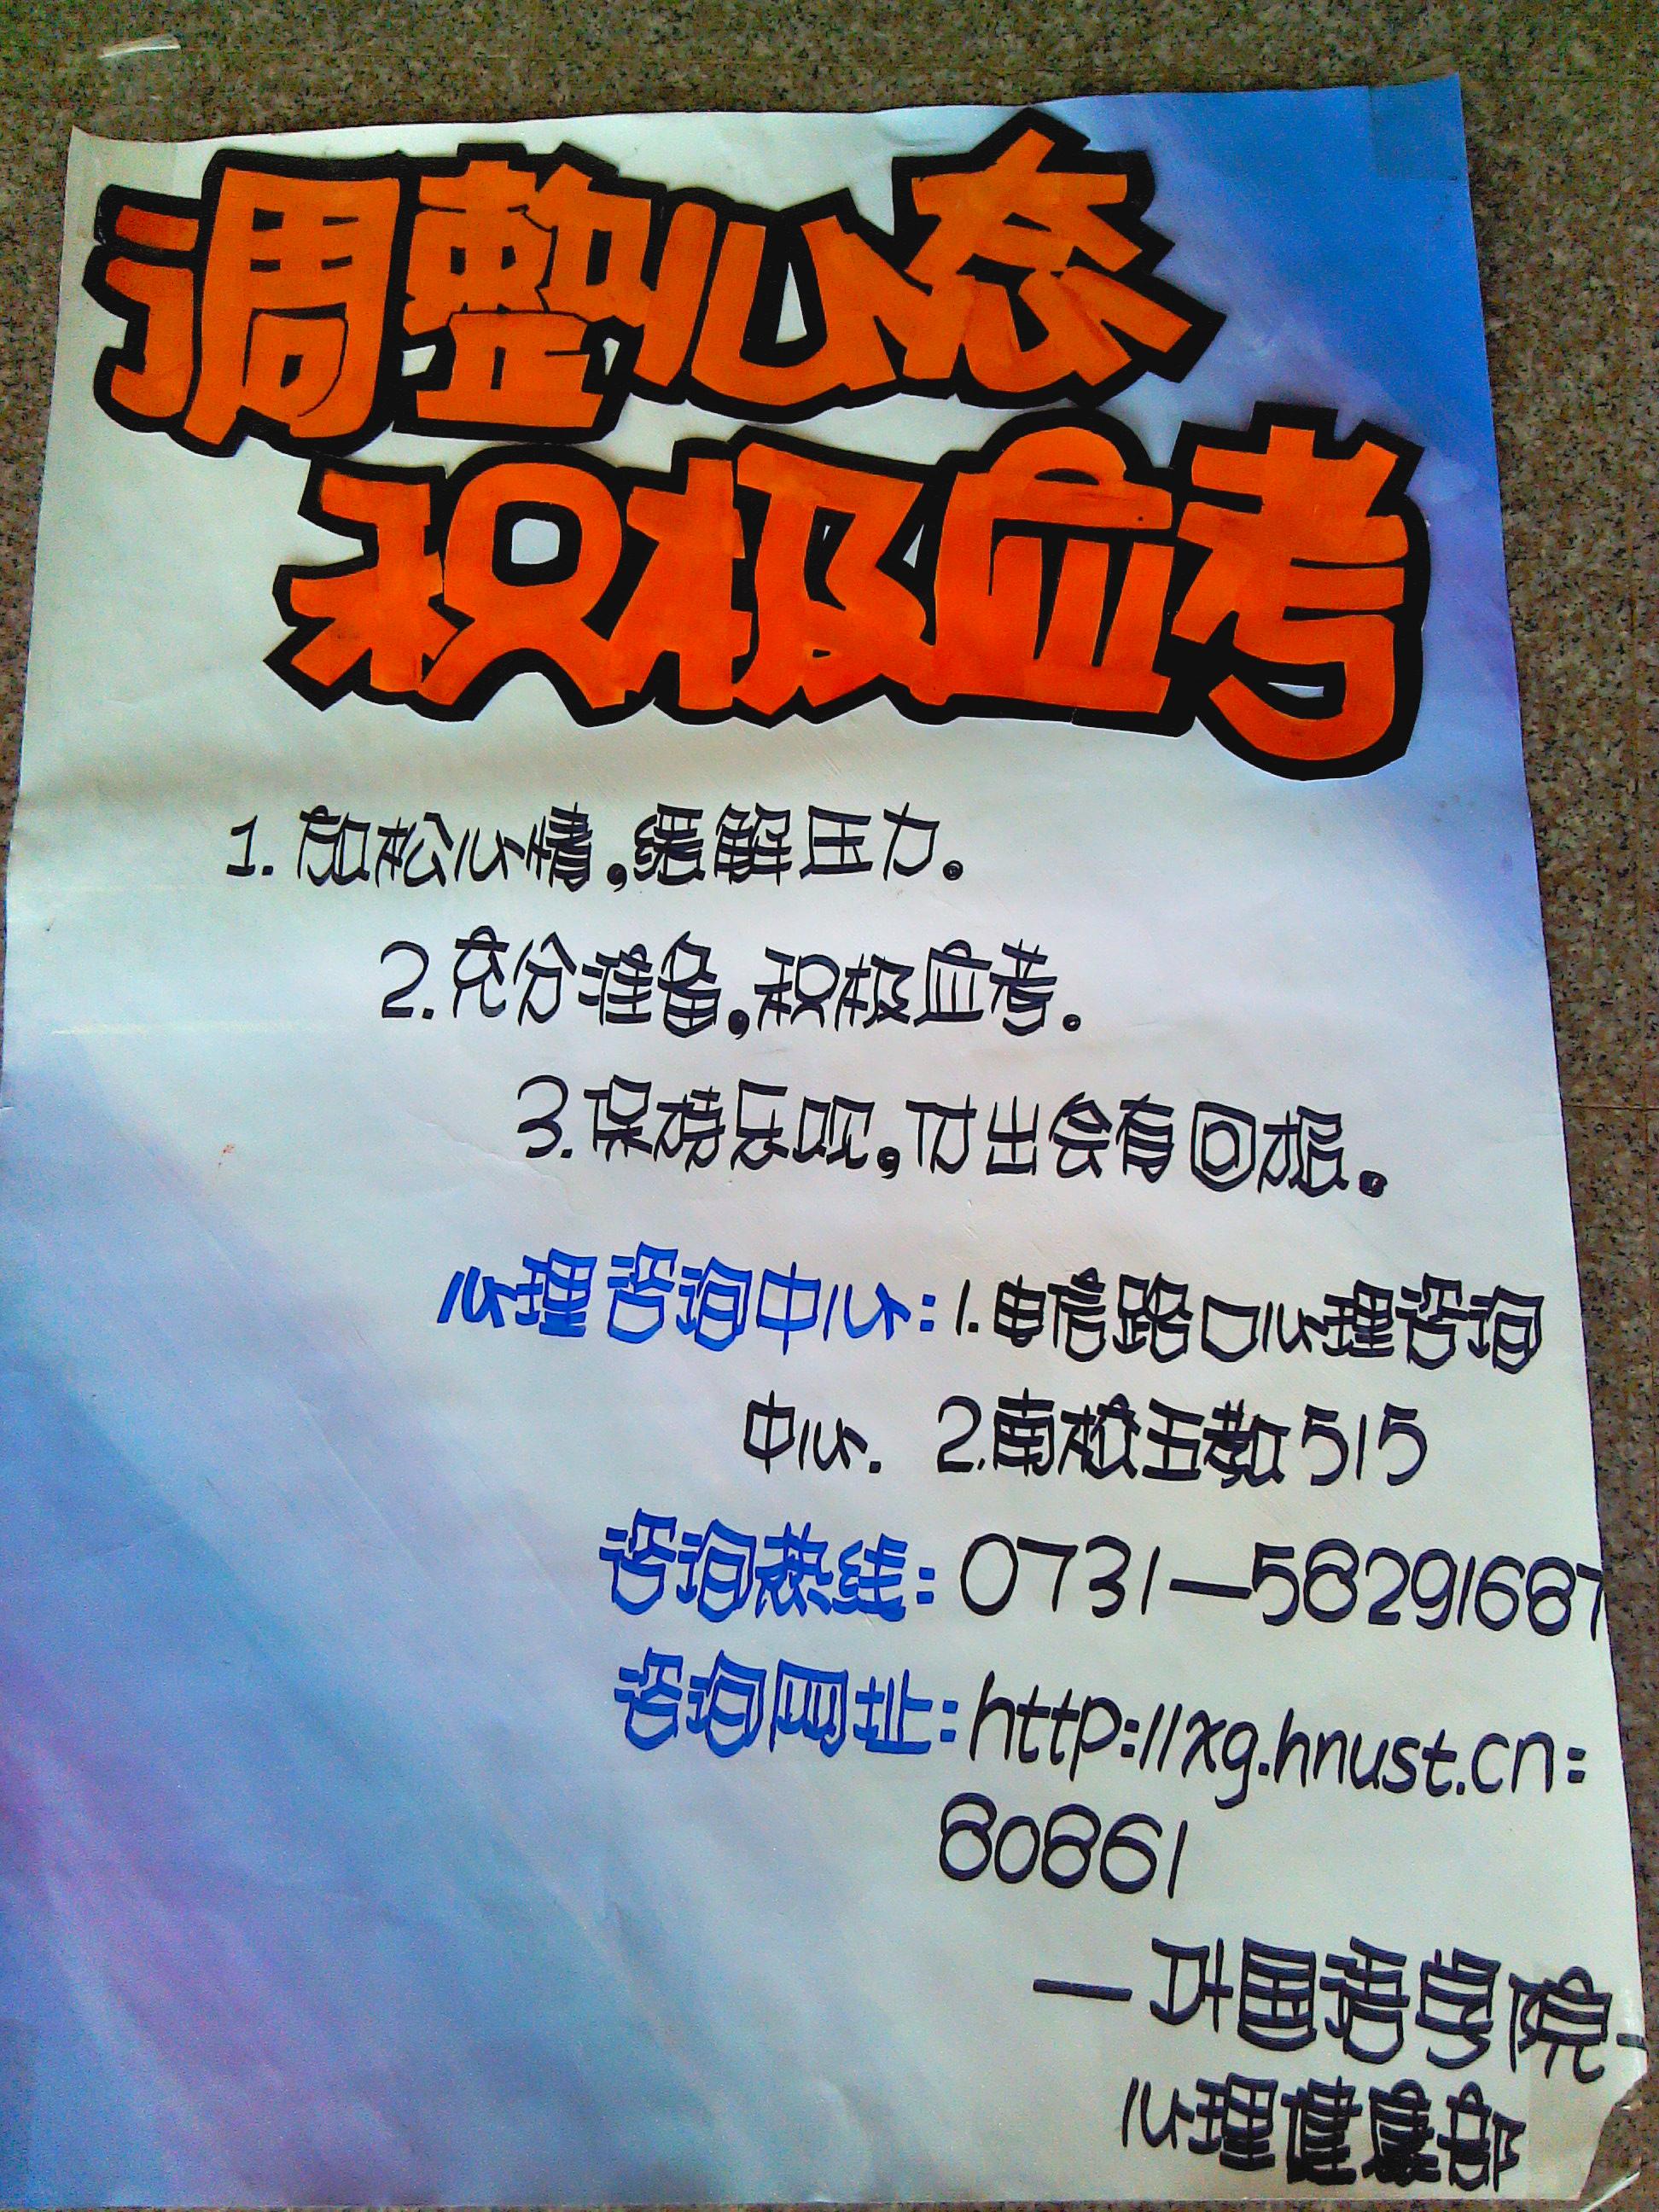 调整心态
积极应考
1. 放松心情，缓解压力。
2. 充分准备，积极应考。
3. 保持乐观，付出会有回报。
心理咨询中心：1. 电信路口心理咨询
中心. 2. 南校五教515
咨询热线：0731—58291687
咨询网址：http://xg.hnust.cn:
80861
心理健康部